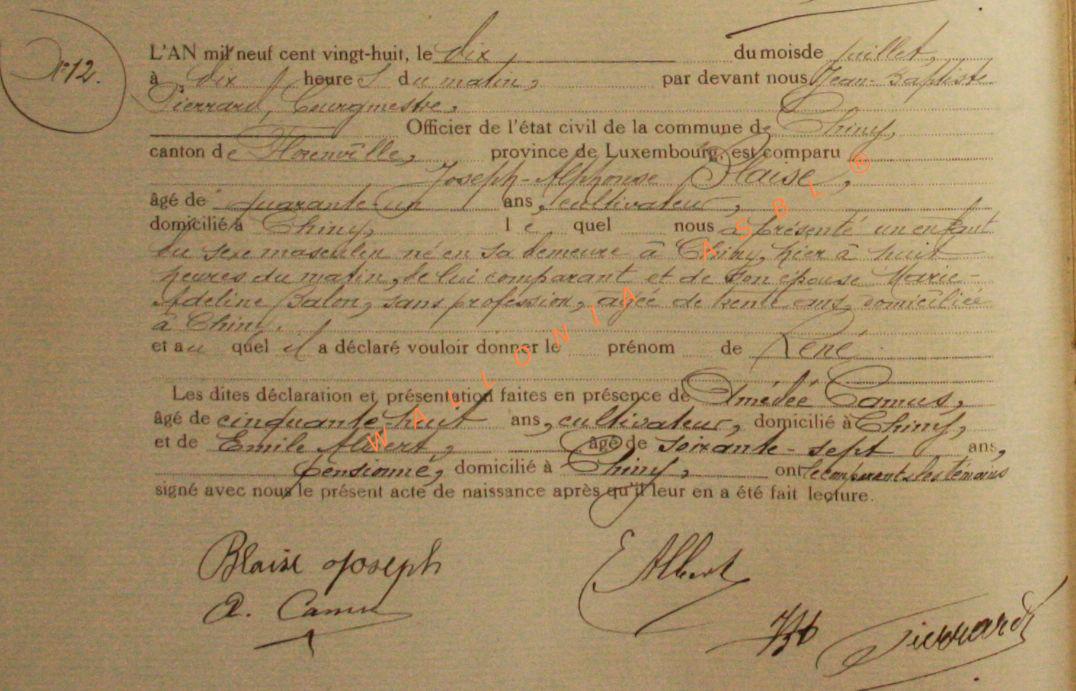 N° 12.
L'AN mil neuf cent vingt-huit, le dix du mois de juillet,
à dix heures du matin, par devant nous Jean-Baptiste
Pierrard, Bourgmestre,
Officier de l'état civil de la commune de Chiny,
canton de Florenville, province de Luxembourg, est comparu
Joseph-Alphonse Blaise,
âgé de quarante-un ans, cultivateur,
domicilié à Chiny, lequel nous a présenté un enfant
du sexe masculin né en sa demeure à Chiny, hier à huit
heures du matin, de lui comparant et de son épouse Marie-
Adeline Salon, sans profession, agée de trente ans, domiciliée
à Chiny.
et au quel il a déclaré vouloir donner le prénom de René.
Les dites déclaration et présentation faites en présence de Amédée Camus,
âgé de cinquante-huit ans, cultivateur, domicilié à Chiny,
et de Emile Albert, âgé de soixante-sept ans,
pensionné, domicilié à Chiny, ont le comparant & les témoins
signé avec nous le présent acte de naissance après qu'il leur en a été fait lecture.
Blaise Joseph
E Albert
A. Camus
JB Pierrard
WALLONIA ASBL ©